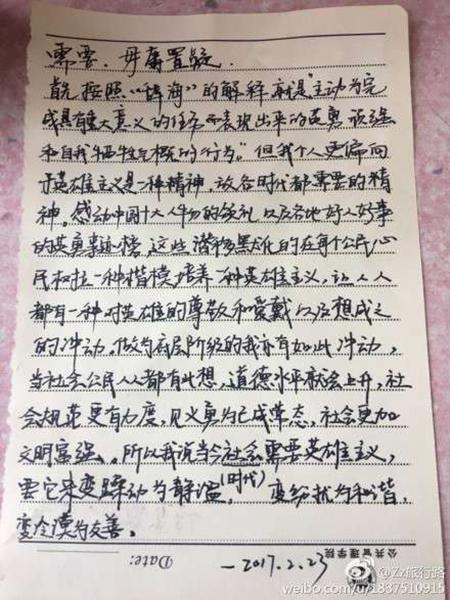 需要，毋庸置疑.
首先按照“辞海”的解释就是“主动为完
成具有重大意义的任务而表现出来的英勇顽强
和自我牺牲气概的行为。”但我个人更偏向
于英雄主义是一种精神，故各时代都需要的精
神。感动中国十大人物的颁礼以及各地好人好事
的英勇事迹榜，这些潜移默化的在每个公民心
民树立一种楷模，培养一种英雄主义，让人人
都有一种对英雄的尊敬和爱戴以及想成之
的冲动。做为底层阶级的我亦有如此冲动，
当社会公民人人都有此想，道德水平就会上升，社
会规范更有力度，见义勇为已成常态，社会更加
文明富强、所以我说当今社会需要英雄主义，
要它来变躁动为静谧，(时代)变纷扰为和谐，
变冷漠为友善。
Date:
—2017.2.23
公共管理学院
@Zz旅行路
weibo.com/u/1837510915